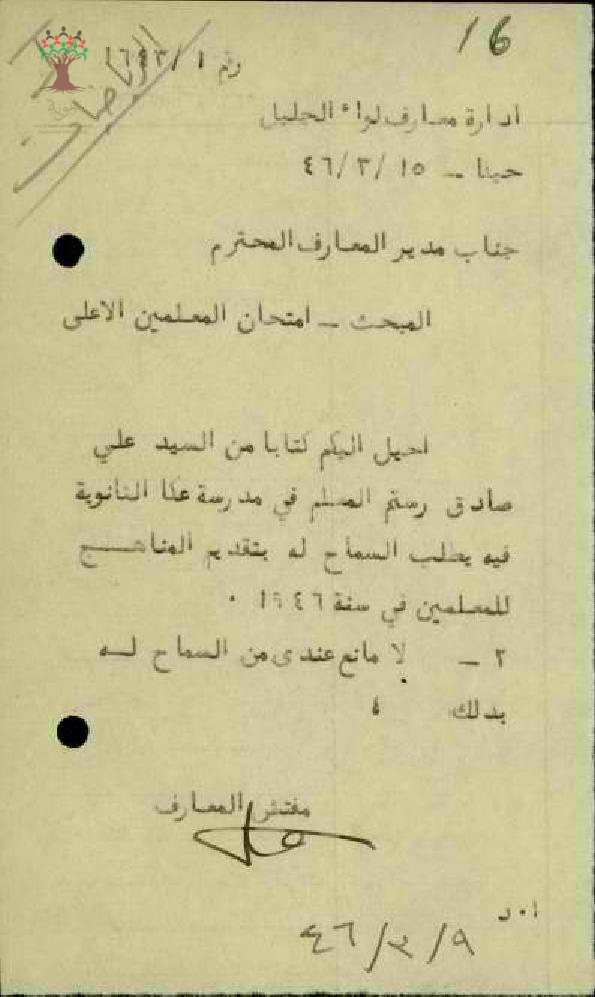 16
رقم ١/١٦٤٣
الرياضيات
ادارة معارف لواء الجليل
حيفا - ٤٦/٣/١٥
جناب مدير المعارف المحترم
المبحث - امتحان المعلمين الاعلى
احيل اليكم كتابا من السيد علي
صادق رستم المعلم في مدرسة عكا الثانوية
فيه يطلب السماح له بتقديم المناهج
للمعلمين في سنة ١٩٤٦ ٠
٢ - لا مانع عندى من السماح له
بذلك ٤
مفتش المعارف
٤٦/٣/٩